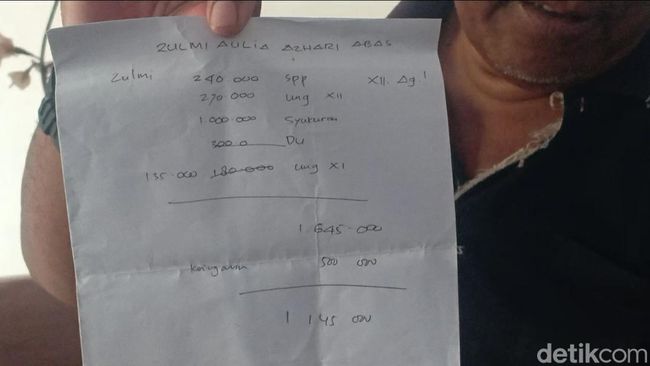 ZULMI AULIA AZHARI ABAS
Zulmi 240 000 SPP XII. Ag 1
270 000 ung XII
1.000 000 Syukuran
300 0 DU
135.000 180 000 ung XI
1 645 000
500 000
1 145 000
detikcom